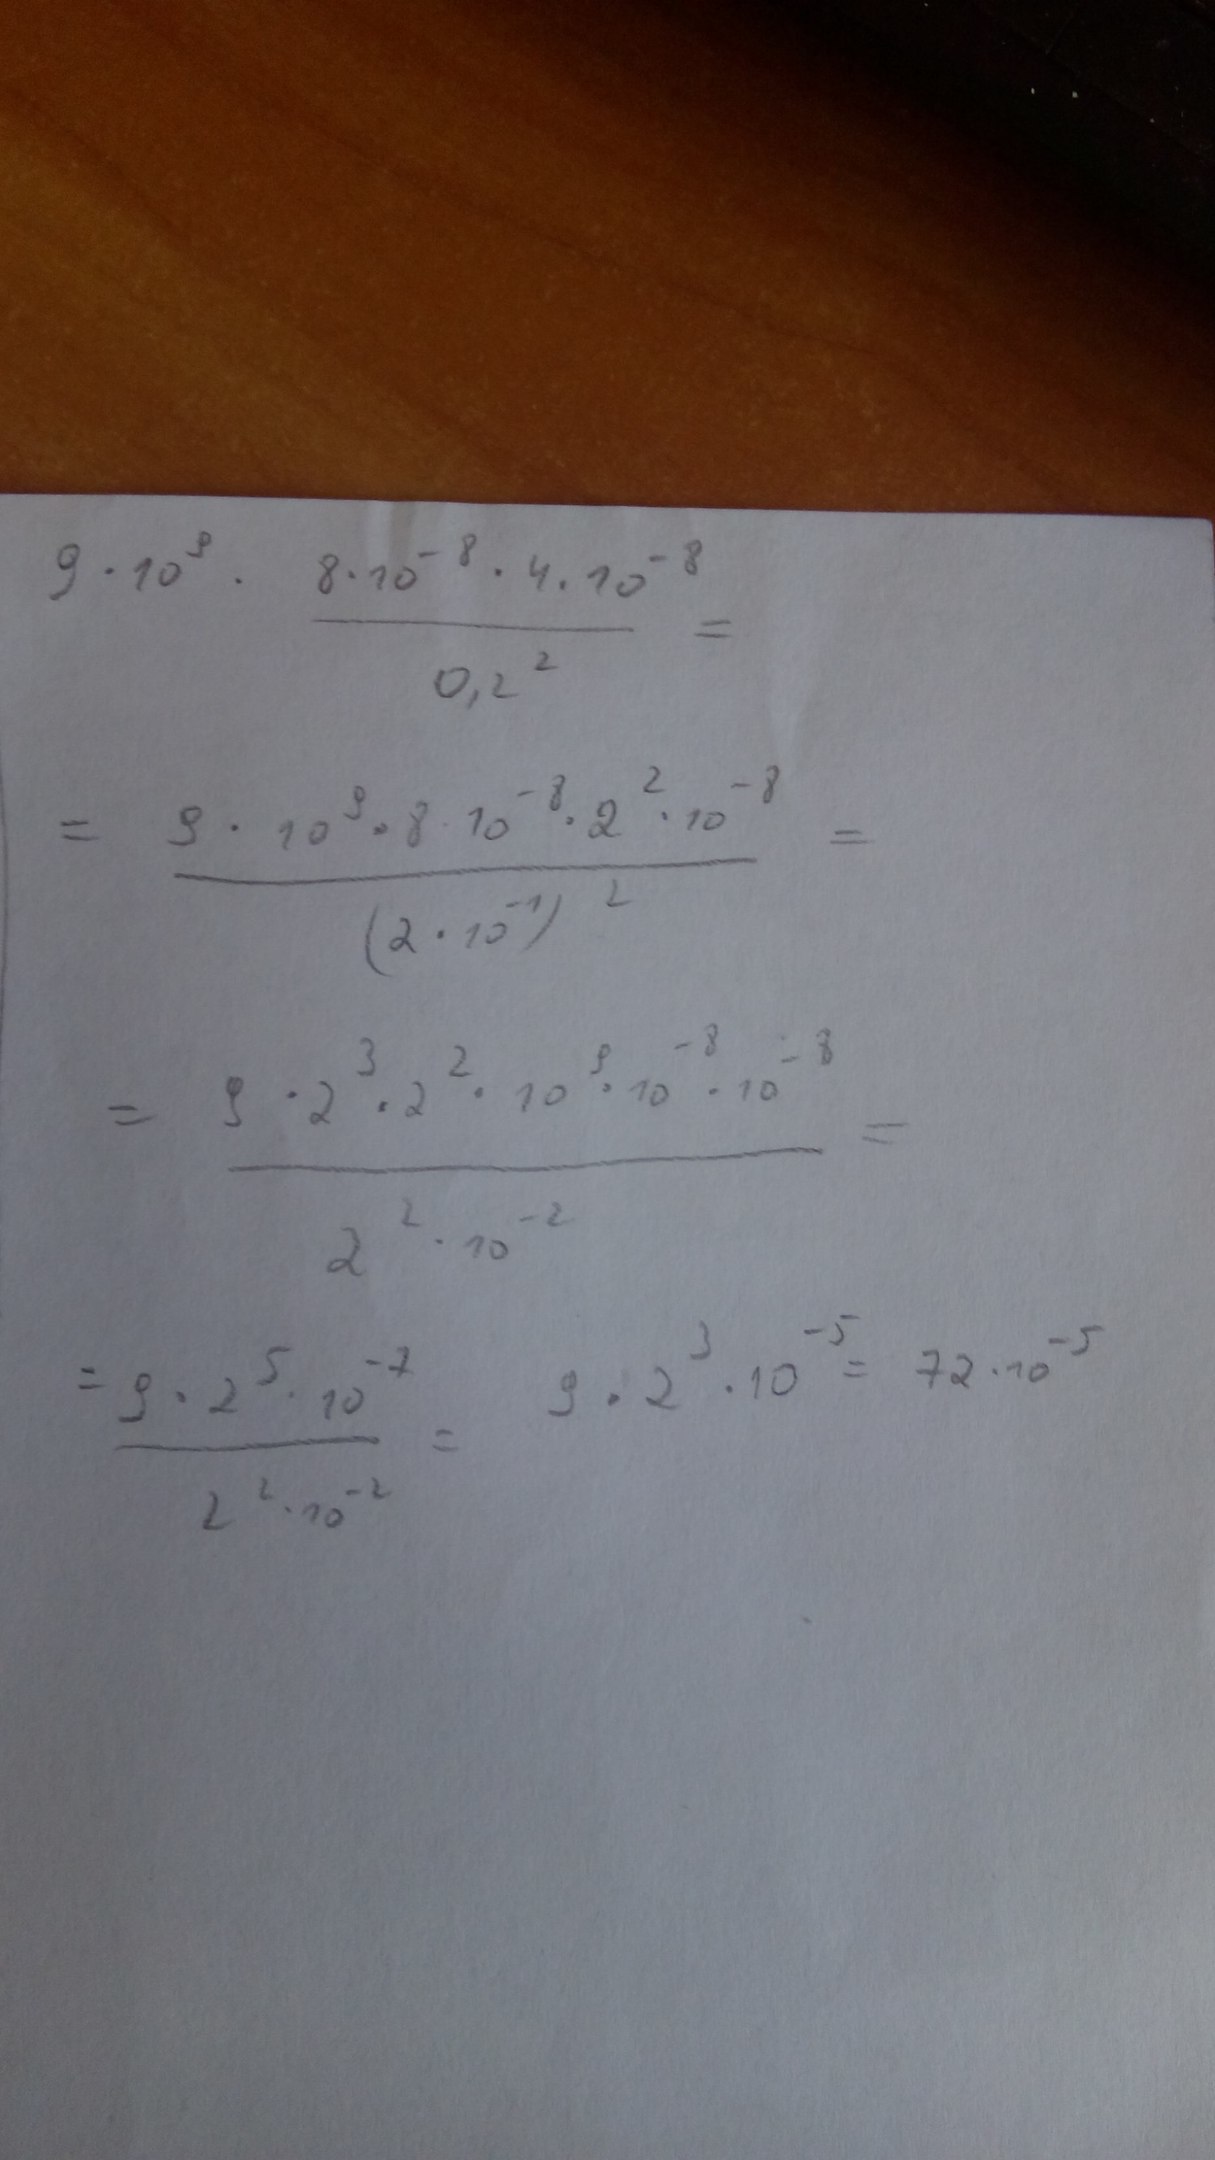 9 · 10⁹ · (8 · 10⁻⁸ · 4 · 10⁻⁸) / 0,2² =
= (9 · 10⁹ · 8 · 10⁻⁸ · 2² · 10⁻⁸) / (2 · 10⁻¹)² =
= (9 · 2³ · 2² · 10⁹ · 10⁻⁸ · 10⁻⁸) / (2² · 10⁻²) =
= (9 · 2⁵ · 10⁻⁷) / (2² · 10⁻²) = 9 · 2³ · 10⁻⁵ = 72 · 10⁻⁵